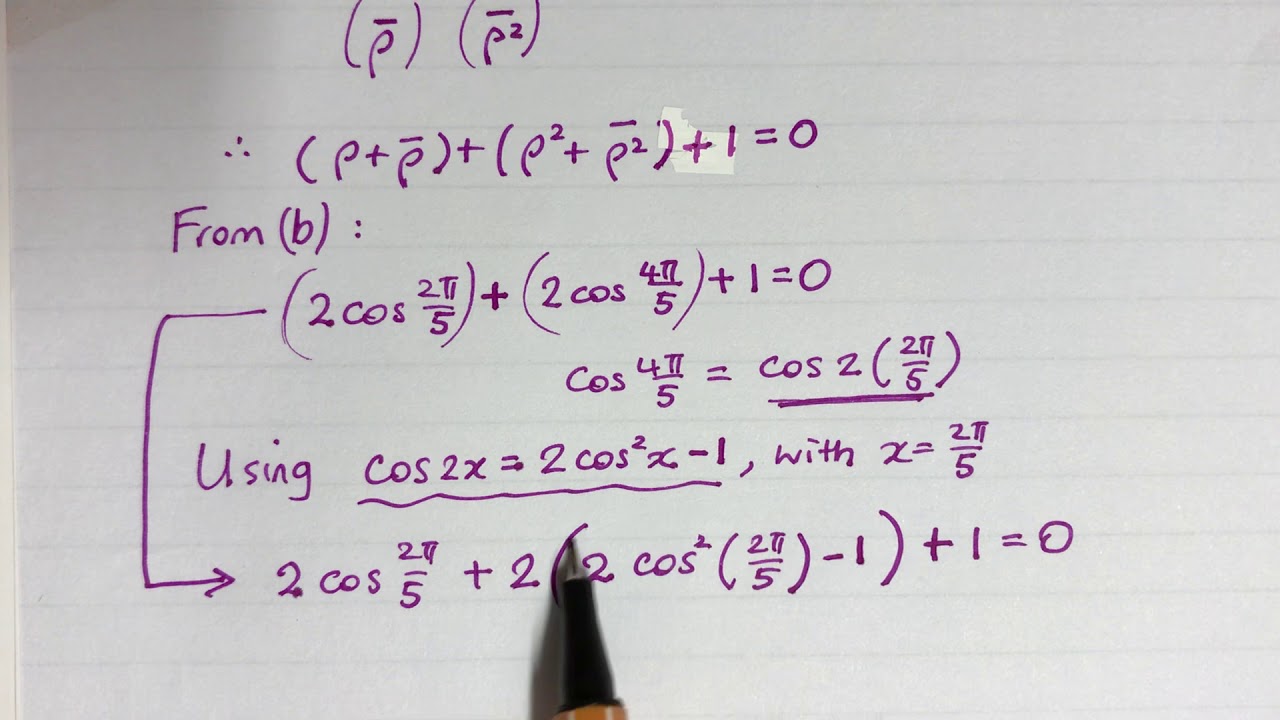 (ρ̄) (ρ̄²)
∴ (ρ+ρ̄)+(ρ²+ρ̄²)+1=0
From (b) :
(2cos 2π/5)+(2cos 4π/5)+1=0
cos 4π/5 = cos 2(2π/5)
Using cos2x=2cos²x-1, with x=2π/5
2 cos 2π/5 + 2(2 cos²(2π/5)-1)+1=0